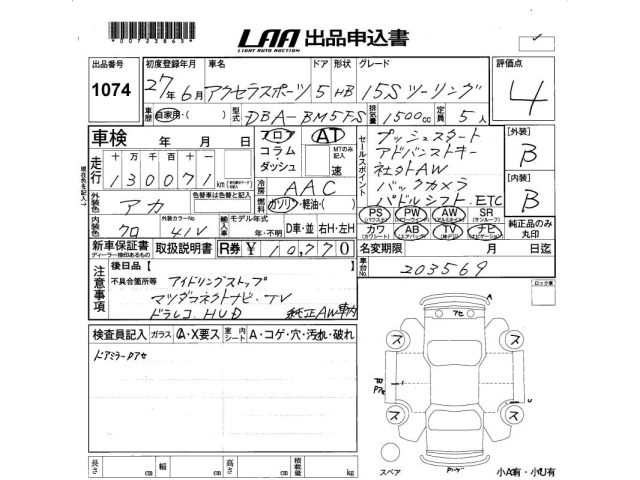 00723863
LAA 出品申込書
LIGHT AUTO AUCTION
出品番号 初度登録年月 車名 ドア 形状 グレード 評価点
1074 27年6月 アクセラスポーツ 5 HB 15S ツーリング 4
車歴 自家用・( ) 型式 DBA-BM5FS 排気量 1500cc 定員 5人
車検 年 月 日 フロア AT セールスポイント プッシュスタート [外装]
コラム・ダッシュ MTのみ記入 速 アドバンストキー B
走行 十万 万 千 百 十 一 社外AW
130071 km バックカメラ [内装]
冷房 AAC パドルシフト.ETC B
外装色 アカ 色替車は色替と記入 燃料 ガソリン・軽油・( )
PS (パワステ) PW (パワーウィンド) AW (アルミホイル) SR (サンルーフ)
内装色 クロ 外装カラーNo. 41V 輸入車 モデル年式 年・不明 D車・並 右H・左H
カワ (カワシート) AB (エアバッグ) TV (純テレビ) ナビ (ナビゲーション) 純正品のみ丸印
新車保証書 取扱説明書 R券 ¥10,770 名変期限 月 日迄
ディーラー捺印あるもの
車台No. 203569
注意事項 後日品 [
不具合箇所等 アイドリングストップ
マツダコネクトナビ・TV
ドラレコ、HUD 純正AW車内
ロック車
検査員記入 ガラス A・X要ス 室内シート A・コゲ・穴・汚れ・破れ
ドアミラーPアセ
アセ
ス ス
ス ス
スペア
小A有・小U有
長さ cm 幅 cm 高さ cm 積載量 kg